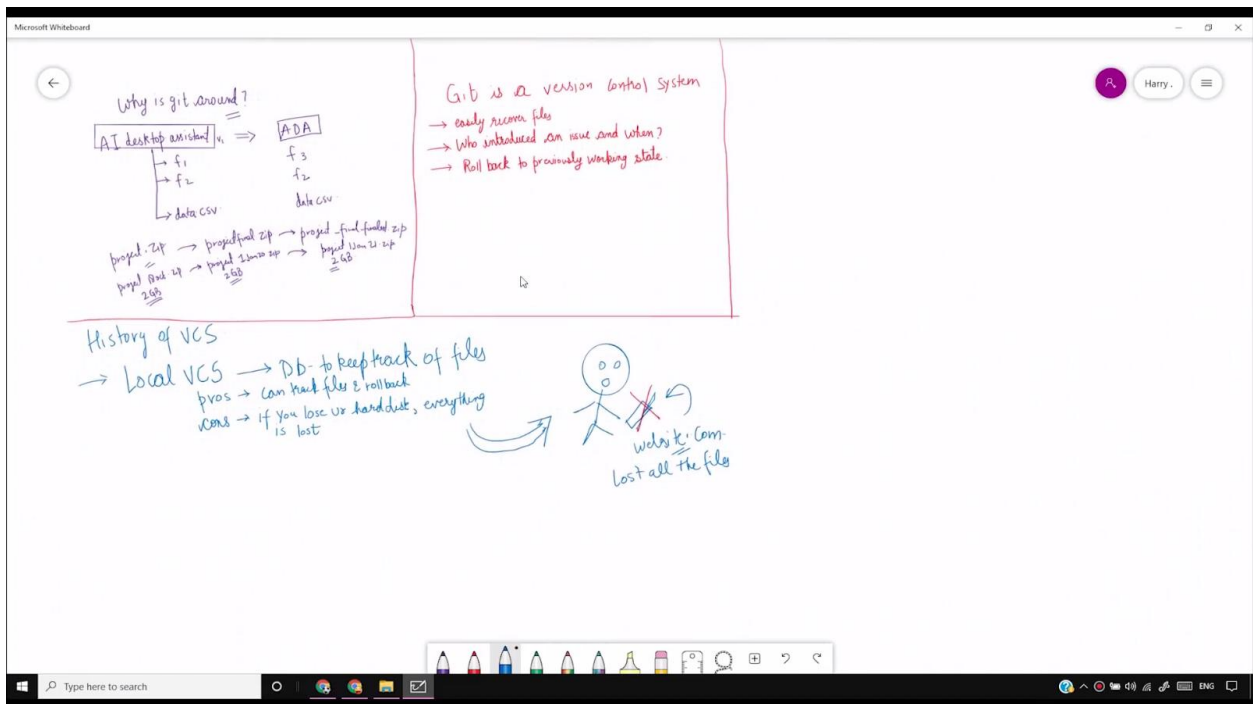 Microsoft Whiteboard
Harry .
Why is git around?
AI desktop assistant v1 ⇒ ADA
→ f1
→ f2
→ data csv
f3
f2
data csv
project.zip → projectfinal zip → project_final_finalest zip
project zip → project 1 Jan 20 zip → project 1 Jan 21 zip
2GB
2GB
2GB
Git is a version control system
→ easily recover files
→ Who introduced an issue and when?
→ Roll back to previously working state.
History of VCS
→ Local VCS → Db - to keep track of files
pros → can track files & rollback
cons → if you lose ur hard disk, everything
is lost
website.com
Lost all the files
Type here to search
ENG